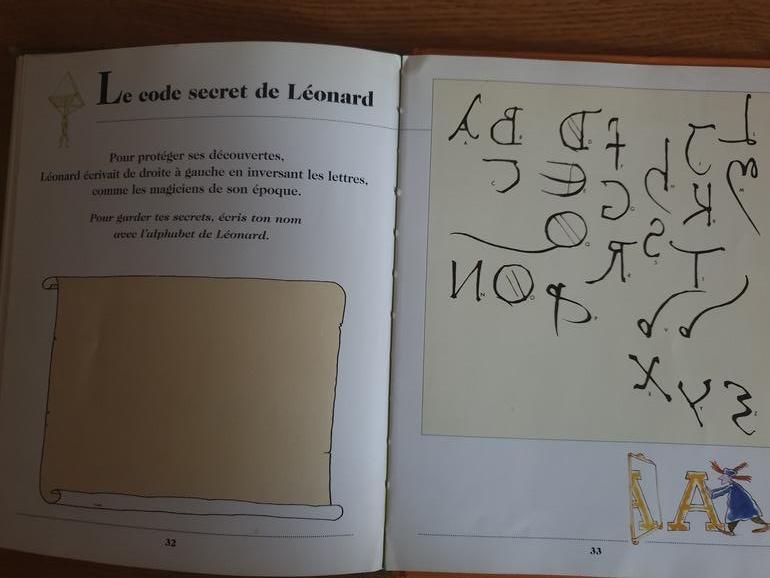 Le code secret de Léonard
Pour protéger ses découvertes,
Léonard écrivait de droite à gauche en inversant les lettres,
comme les magiciens de son époque.
Pour garder tes secrets, écris ton nom
avec l'alphabet de Léonard.
32
A B D F
C E G H J K L M
Q R S T
N O P
X Y Z
A
33